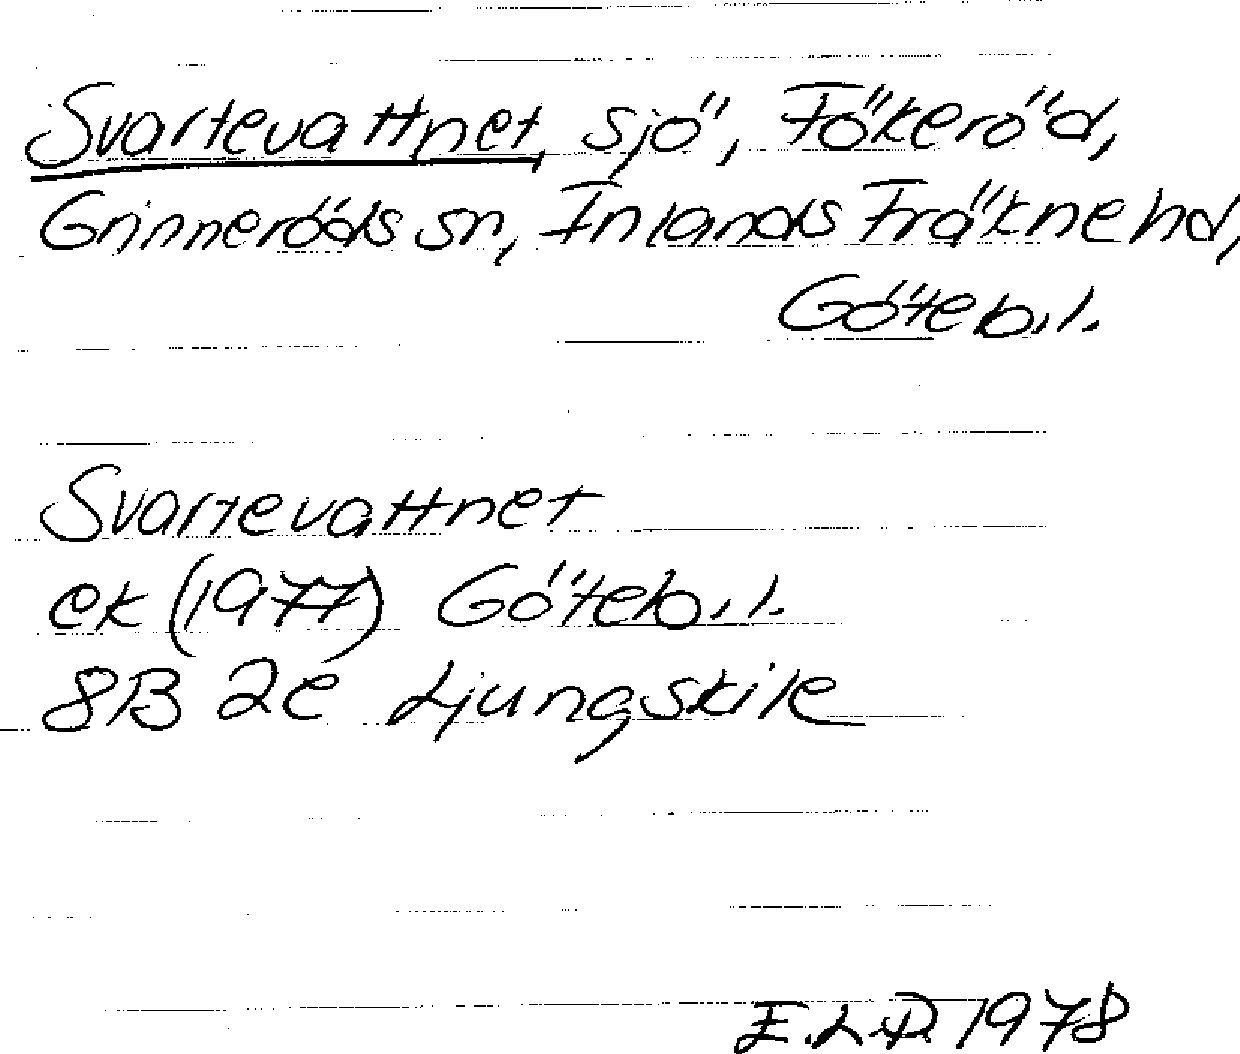 Svartevattnet, sjö, Fökeröd,
Grinneröds sn, Inlands Fräkne hd,
Göteb.l.
Svartevattnet
ek (1977) Göteb.l.
8B 2e Ljungskile
E.L.D. 1978